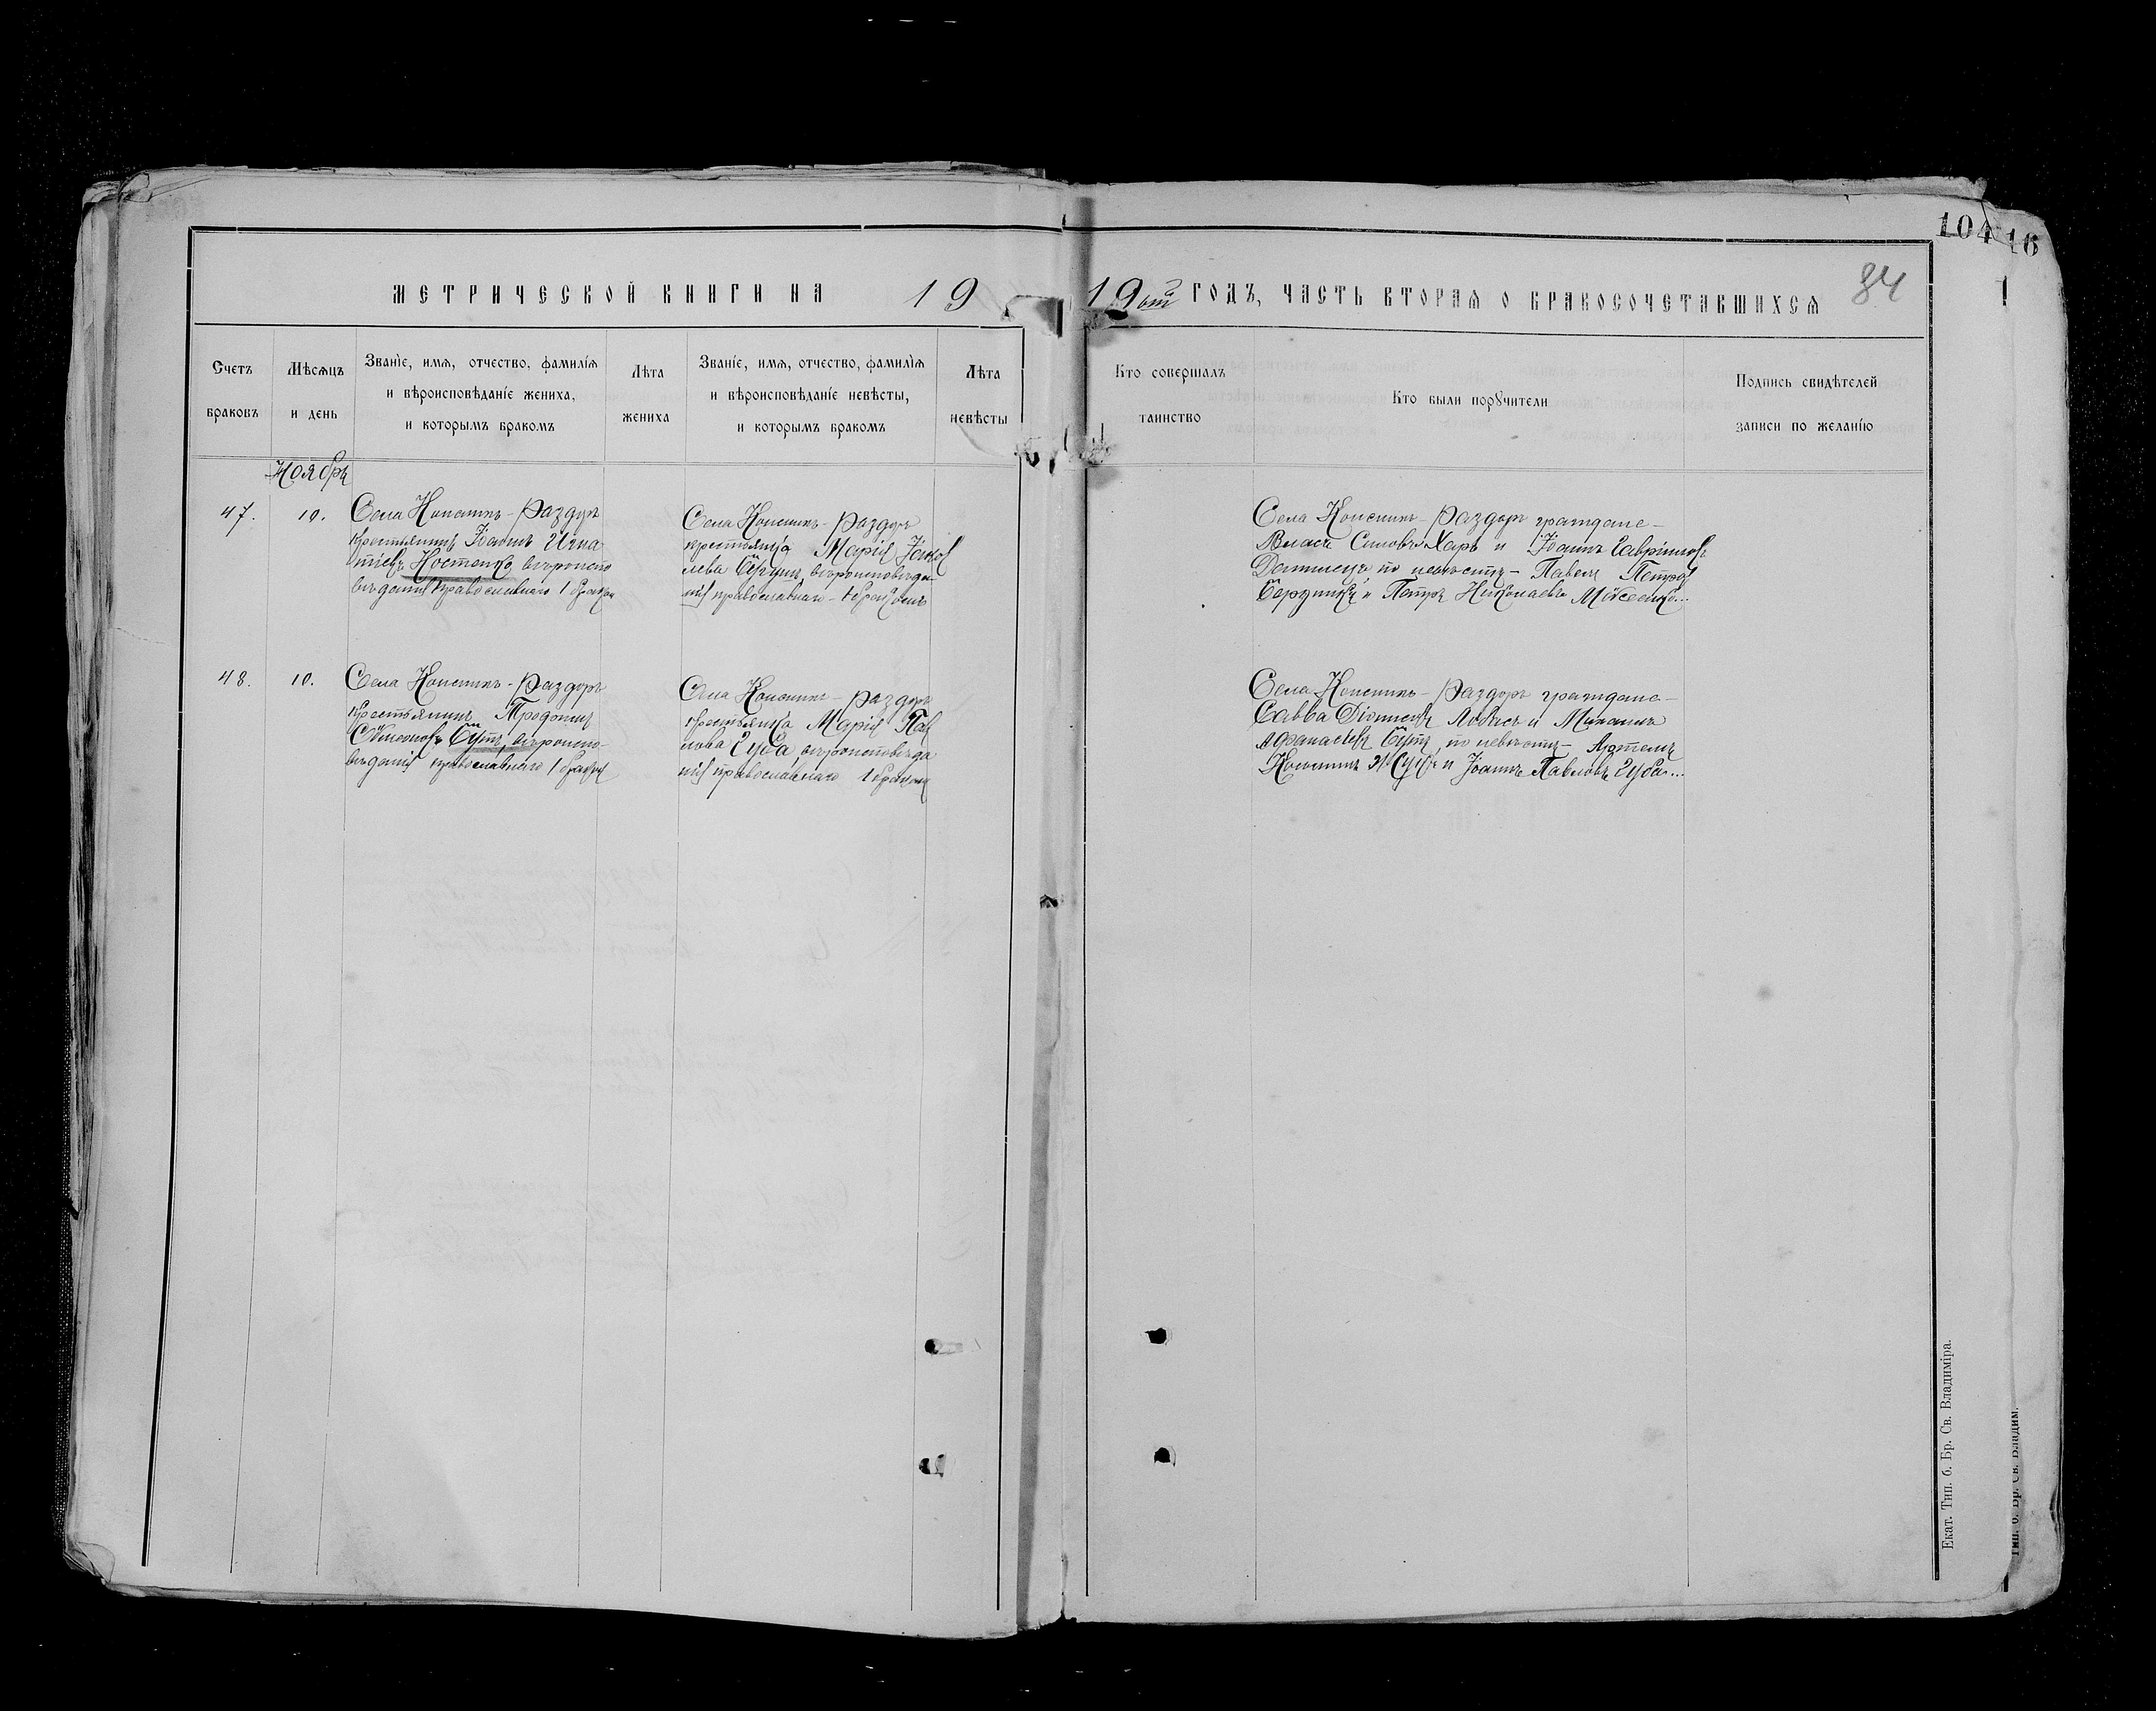 104 16
84
МЕТРИЧЕСКОЙ КНИГИ НА 19
19 ГОДЪ, ЧАСТЬ ВТОРАЯ О БРАКОСОЧЕТАВШИХСЯ
Счетъ браковъ
Мѣсяцъ и день
Званіе, имя, отчество, фамилія
и вѣроисповѣданіе жениха,
и которымъ бракомъ
Лѣта жениха
Званіе, имя, отчество, фамилія
и вѣроисповѣданіе невѣсты,
и которымъ бракомъ
Лѣта невѣсты
Кто совершалъ таинство
Кто были поручители
Подпись свидѣтелей
записи по желанію
Ноябрь
47.
10.
Села Конскихъ-Раздоръ
крестьянинъ Іоаннъ Игна
тіевъ Костенко, вѣроиспо
вѣданія православнаго 1 бракомъ
Села Конскихъ-Раздоръ
крестьянка Марія Іаков
лева вѣроисповѣда
нія православнаго - 1 бракомъ
Села Конскихъ-Раздоръ граждане -
Власъ Харь и Іоаннъ Гавріиловъ
по невѣстѣ - Павелъ Петровъ
и Петръ Николаевъ Мовсеенко...
48.
10.
Села Конскихъ-Раздоръ
крестьянинъ
Симеоновъ вѣроиспо-
вѣданія православнаго 1 бракомъ
Села Конскихъ-Раздоръ
крестьянка Марія Пав
лова Губа, вѣроисповѣда
нія православнаго 1 бракомъ
Села Конскихъ-Раздоръ граждане -
Савва и Михаилъ
Афанасіевъ по невѣстѣ - Артемъ
и Іоаннъ Павловъ Губа...
Екат. Тип. б. Бр. Св. Владиміра.
Тип. б. Бр. Св. Владим.